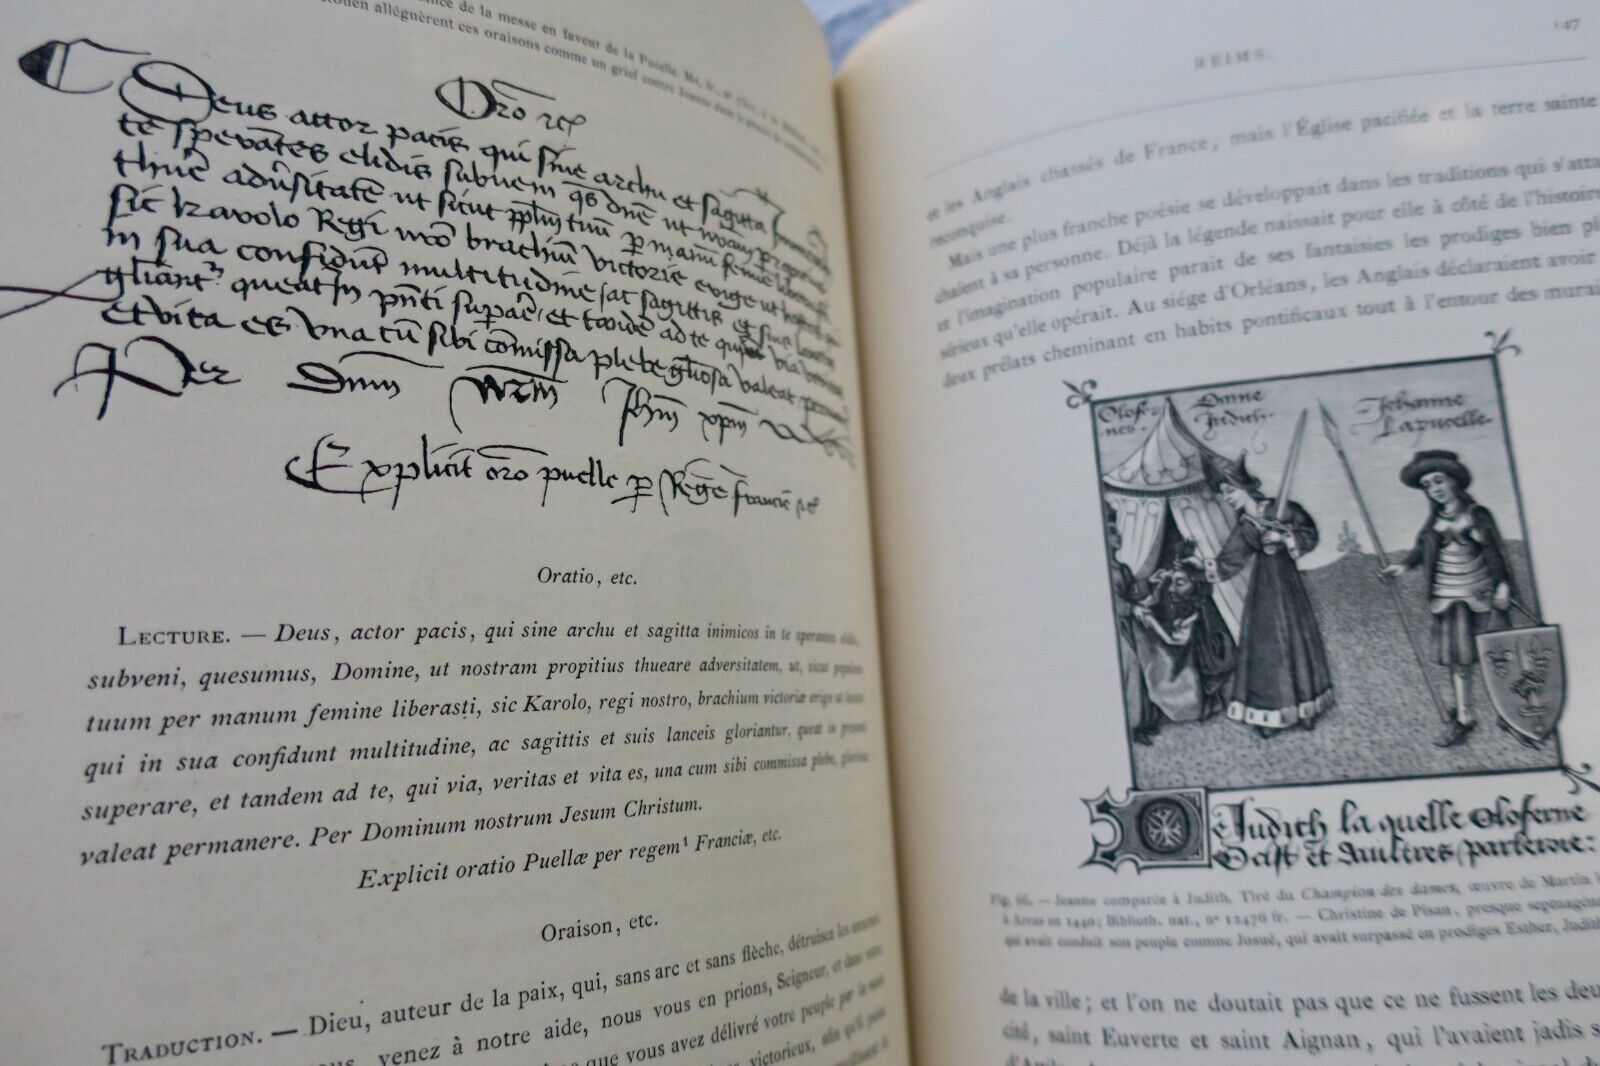 de la messe en faveur de la Pucelle. Ms. fr., nº
Rouen alléguèrent ces oraisons comme un grief contre Jeanne dans le procès de
Oro⁠ etc
Deus attor pacis qui sine archu et sagitta
te sperātes elidis subvem qs dñe ut nr̄am propitius
thuē adūsitatē ut sicut pplm tuū p manū femīe liberasti
sic karolo Regi nr̄o brachiū victorie erige ut hostes qui
in sua confidūt multitudine sat sagittis et suis lanceis
gliant᷑ queāt in pn̄ti supāe, et tandē ad te qui via veritas
et vita es una cū sibi cōmissa plebe gliosa valeat permane
Per dnm nrm Jhm xpm
Explicit oro puelle p Regē francie etc
Oratio, etc.
LECTURE. — Deus, actor pacis, qui sine archu et sagitta inimicos in te sperantes elidis,
subveni, quesumus, Domine, ut nostram propitius thueare adversitatem, ut, sicut populum
tuum per manum femine liberasti, sic Karolo, regi nostro, brachium victoriæ erige ut hostes
qui in sua confidunt multitudine, ac sagittis et suis lanceis gloriantur, queat in presenti
superare, et tandem ad te, qui via, veritas et vita es, una cum sibi commissa plebe, gloriose
valeat permanere. Per Dominum nostrum Jesum Christum.
Explicit oratio Puellæ per regem¹ Franciæ, etc.
Oraison, etc.
TRADUCTION. — Dieu, auteur de la paix, qui, sans arc et sans flèche, détruisez les ennemis
venez à notre aide, nous vous en prions, Seigneur, et dans votre
que vous avez délivré votre peuple par la main
victorieux, afin qu'il puisse
REIMS.
147
et les Anglais chassés de France, mais l'Église pacifiée et la terre sainte
reconquise.
Mais une plus franche poésie se développait dans les traditions qui s'atta
chaient à sa personne. Déjà la légende naissait pour elle à côté de l'histoire
et l'imagination populaire parait de ses fantaisies les prodiges bien pl
sérieux qu'elle opérait. Au siége d'Orléans, les Anglais déclaraient avoir
deux prélats cheminant en habits pontificaux tout à l'entour des murai
Olofer
nes.
Dame
Judich.
Jehanne
La pucelle.
De Judich la quelle Oloferne
Ocist et aultres parleroie:
Fig. 66. — Jeanne comparée à Judith. Tiré du Champion des dames, œuvre de Martin l
à Arras en 1440; Biblioth. nat., nº 12476 fr. — Christine de Pisan, presque septuagéna
qui avait conduit son peuple comme Josué, qui avait surpassé en prodiges Esther, Judith
de la ville; et l'on ne doutait pas que ce ne fussent les deu
cité, saint Euverte et saint Aignan, qui l'avaient jadis s